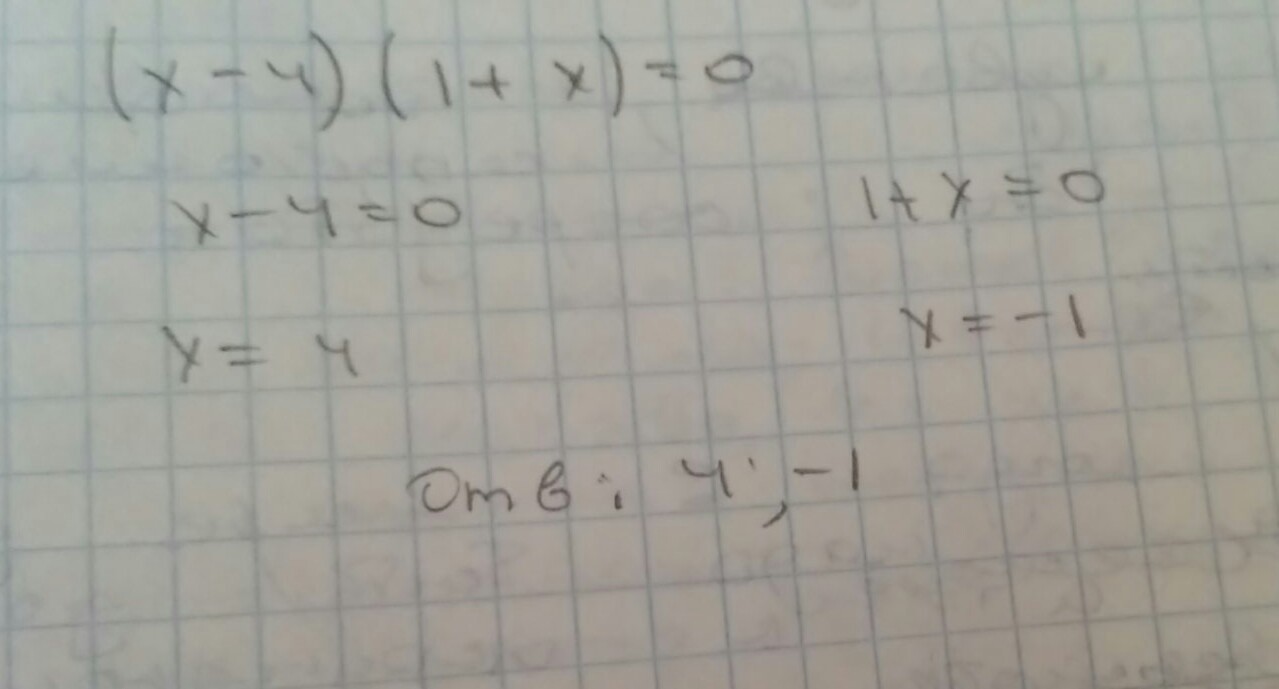 (x-4)(1+x)=0
x-4=0 1+x=0
x=4 x=-1
Отв: 4; -1